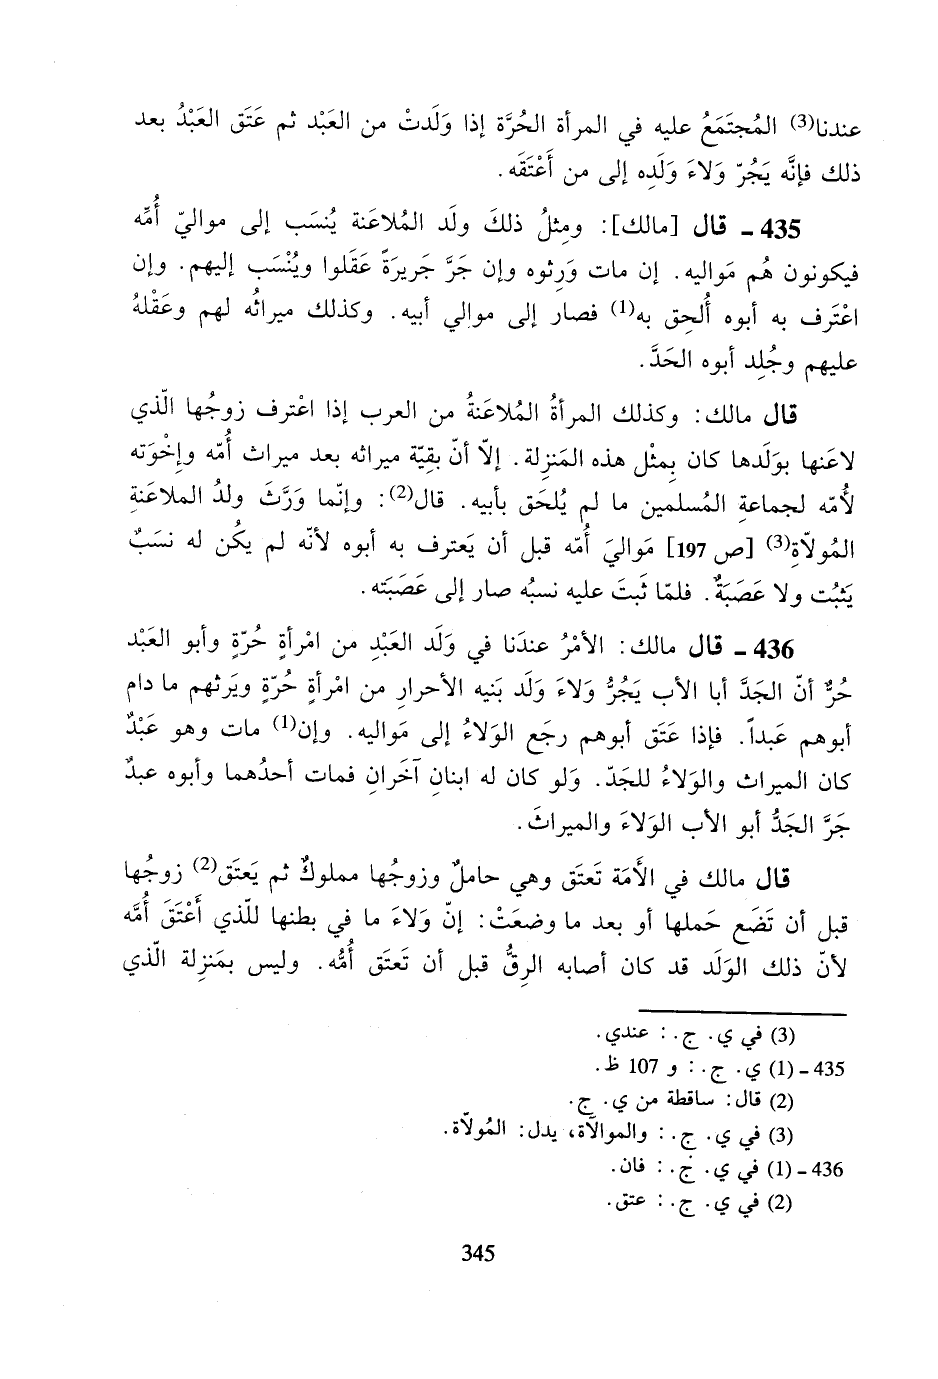 عندنا(3) المُجتَمَعُ عليه في المرأة الحُرَّة إذا وَلَدتْ من العَبْد ثم عَتَق العَبْدُ بعد
ذلك فإنَّه يَجُرّ وَلاءَ وَلَدِه إلى من أَعْتَقَه.
435 ـ قال [مالك]: ومِثلُ ذلكَ ولَد المُلاعَنة يُنسَب إلى مواليّ أُمِّه
فيكونون هُم مَواليه. إن مات وَرِثوه وإن جَرَّ جَريرَةً عَقَلوا ويُنْسَب إليهم. وإن
اعْتَرف به أبوه أُلحِق به(1) فصار إلى موالي أبيه. وكذلك ميراثُه لهم وعَقْلهُ
عليهم وجُلِد أبوه الحَدَّ.
قال مالك: وكذلك المرأةُ المُلاعَنةُ من العرب إذا اعْترف زوجُها الّذي
لاعَنها بوَلَدها كان بِمثْل هذه المَنزِلة. إلاّ أنّ بقِيّة ميراثه بعد ميراث أُمّه وإخْوَته
لأُمّه لجماعةِ المُسلمين ما لم يُلحَق بأبيه. قال(2): وإنّما وَرَّثَ ولدُ الملاعَنةِ
المُولاّةِ(3) [ص 197] مَواليَ أُمّه قبل أن يَعترف به أبوه لأنّه لم يكُن له نسَبٌ
يَثبُت ولا عَصَبَةٌ. فلمّا ثَبتَ عليه نسبُه صار إلى عَصَبَته.
436 ـ قال مالك: الأمْرُ عندَنا في وَلَد العَبْدِ من امْرأةٍ حُرّةٍ وأبو العَبْد
حُرٌّ أنّ الجَدَّ أبا الأب يَجُرُّ وَلاءَ وَلَد بَنيه الأحرارِ من امْرأةٍ حُرّةٍ ويَرثهم ما دام
أبوهم عَبداً. فإذا عَتَق أبوهم رجَع الوَلاءُ إلى مَواليه. وإن(1) مات وهو عَبْدٌ
كان الميراث والوَلاءُ للجَدّ. وَلو كان له ابنانِ آخَرانِ فمات أحدُهما وأبوه عبدٌ
جَرَّ الجَدُّ أبو الأب الوَلاءَ والميراثَ.
قال مالك في الأَمَة تَعتَق وهي حاملٌ وزوجُها مملوكٌ ثم يَعتَق(2) زوجُها
قبل أن تَضَع حَملها أو بعد ما وضعَتْ: إنّ وَلاءَ ما في بطنها للّذي أَعْتَقَ أُمَّه
لأنّ ذلك الوَلَد قد كان أصابه الرِقُّ قبل أن تَعتَق أُمُّه. وليس بمَنزِلة الّذي
(3) في ي. ج.: عندي.
435 ـ (1) ي. ج.: و 107 ظ.
(2) قال: ساقطة من ي. ج.
(3) في ي. ج.: والموالاَة، يدل: المُولاّة.
436 ـ (1) في ي. ج.: فان.
(2) في ي. ج.: عتق.
345